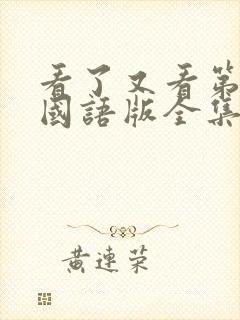 看了又看第
國語版全集
黄連荣